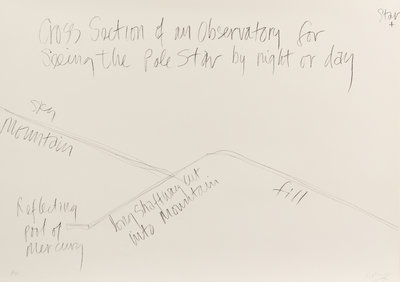 Star
+
Cross Section of an Observatory for
Seeing the Pole Star by night or day
Sky
Mountain
long shaftway cut
into Mountain
fill
Reflecting
pool of
Mercury